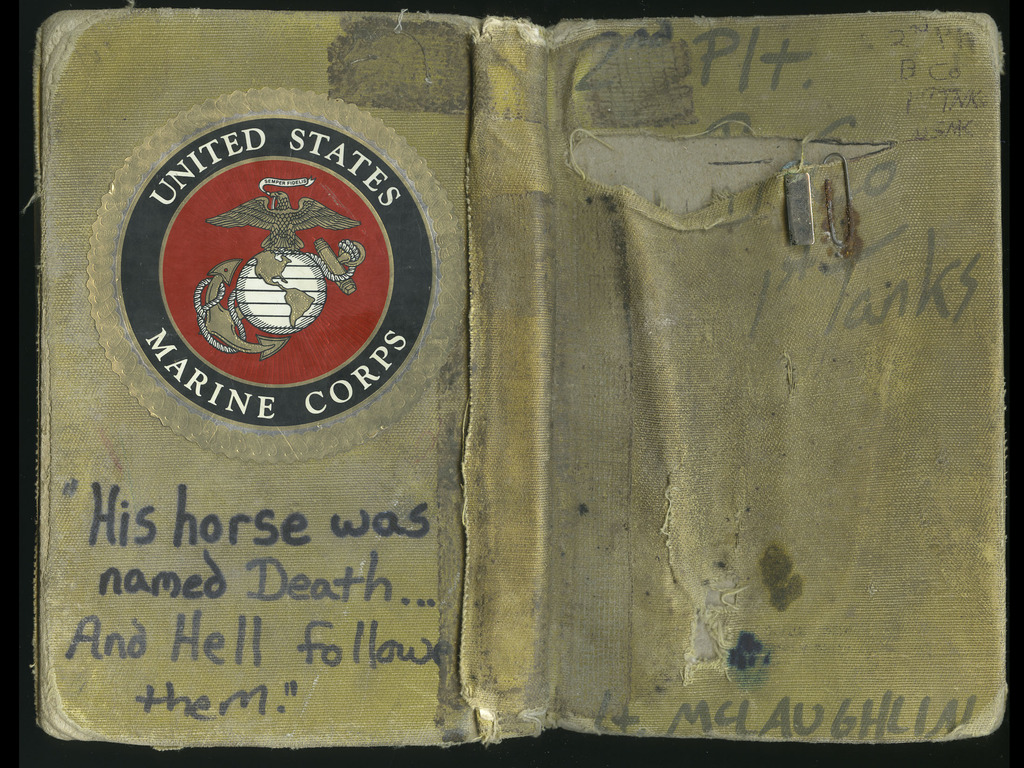 UNITED STATES
SEMPER FIDELIS
MARINE CORPS
"His horse was
named Death...
And Hell followe
them."
2nd Plt.
B Co
1st Tanks
Lt. McLAUGHLIN
2nd Plt
B Co
1st TNKS
USMC